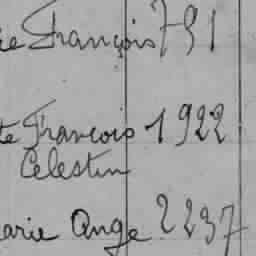 ie François 791
te Francois 1922
Celestin
arie Ange 2237